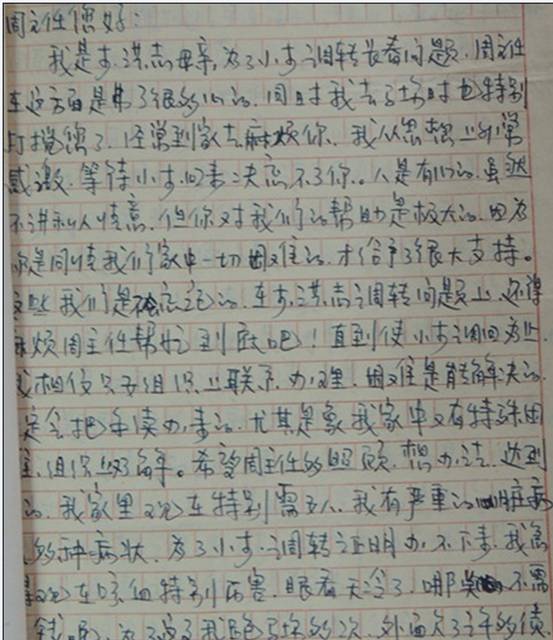 周主任您好：
我是李洪志母亲，为了小李调转长春问题，周主任
在这方面是费了很多心的，同时我去了场时也特别
打搅您了，经常到家去麻烦你，我从思想上非常
感激，等待小李回来决忘不了你。人是有心的，虽然
不讲私人情意，但你对我们的帮助是极大的，因为
你是同情我们家中一切困难的，才给予了很大支持。
这些我们是不会忘记的。在李洪志调转问题上，还得
麻烦周主任帮忙到底吧！直到使小李调回为止，
我相信只要组织上联系，办理，困难是能解决的，
定会把手续办来的，尤其是象我家中又有特殊困
难，组织上好解。希望周主任多照顾，想办法，达到
的，我家里现在特别需要人，我有严重的脏病
多种病状，为了小李调转证明办不下来，我急
现在咳血特别厉害，眼看天冷了，哪不需
钱呢，